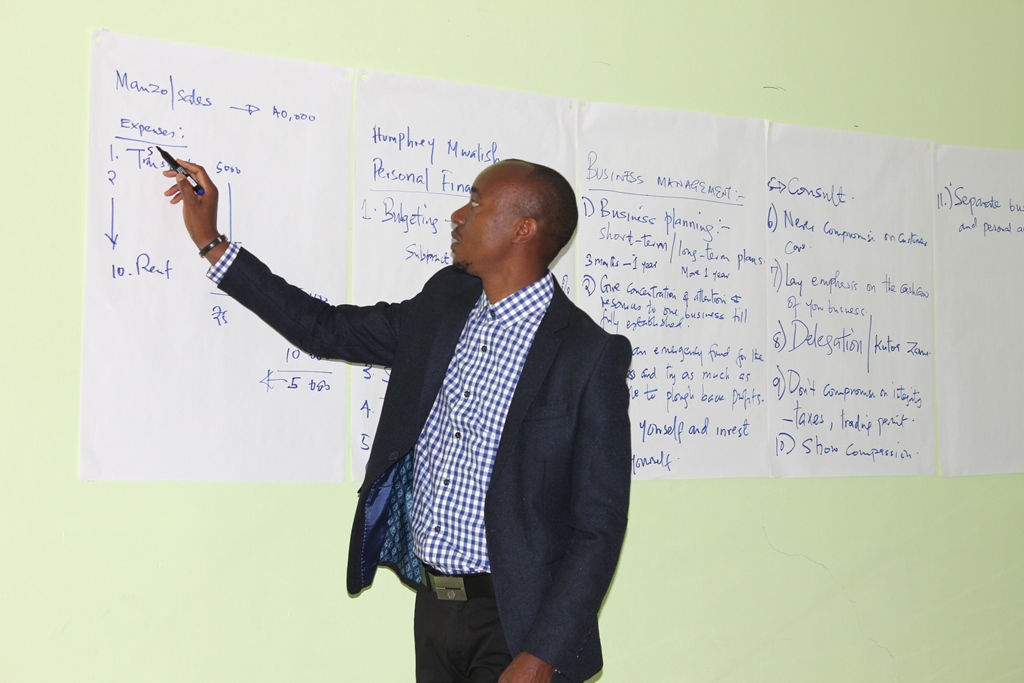 Manzo/sales → 40,000
Expenses:
1. Trans 5000
2
10. Rent
75
10
5 000
Humphrey Mwalish
Personal Fina
1. Budgeting -
Subtract
3
4.
5
BUSINESS MANAGEMENT:-
1) Business planning:-
short-term / long-term plans.
3 months - 1 year More 1 year
2) Give concentration of attention &
resources to one business till
fully established.
an emergency fund for the
and try as much as
to plough back profits.
yourself and invest
yourself.
5) Consult.
6) Never compromise on customer
care.
7) Lay emphasis on the cashflow
of your business.
8) Delegation /
9) Don't compromise on integrity
- taxes, trading permit.
10) Show compassion.
11.) Separate bus
and personal a